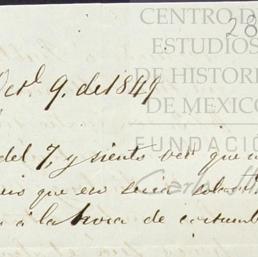 CENTRO DE
ESTUDIOS
DE HISTORI
DE MEXICO
FUNDACIÓ
28
Oct.e 9. de 1849
del 7, y siento ver que
que en
a la hora de costumb